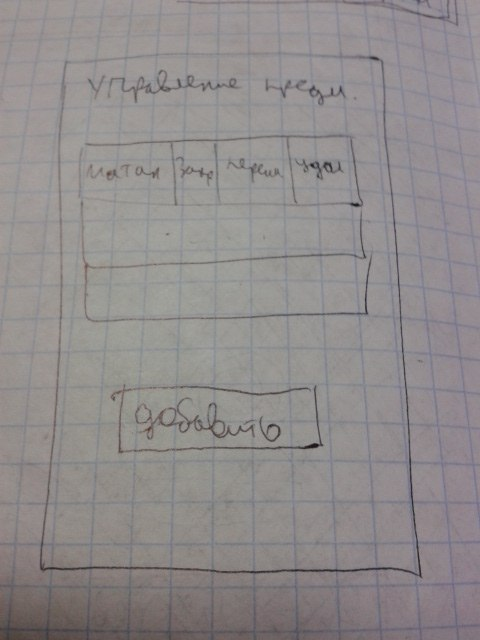 Управление предм.
матан закр переим удал
добавить